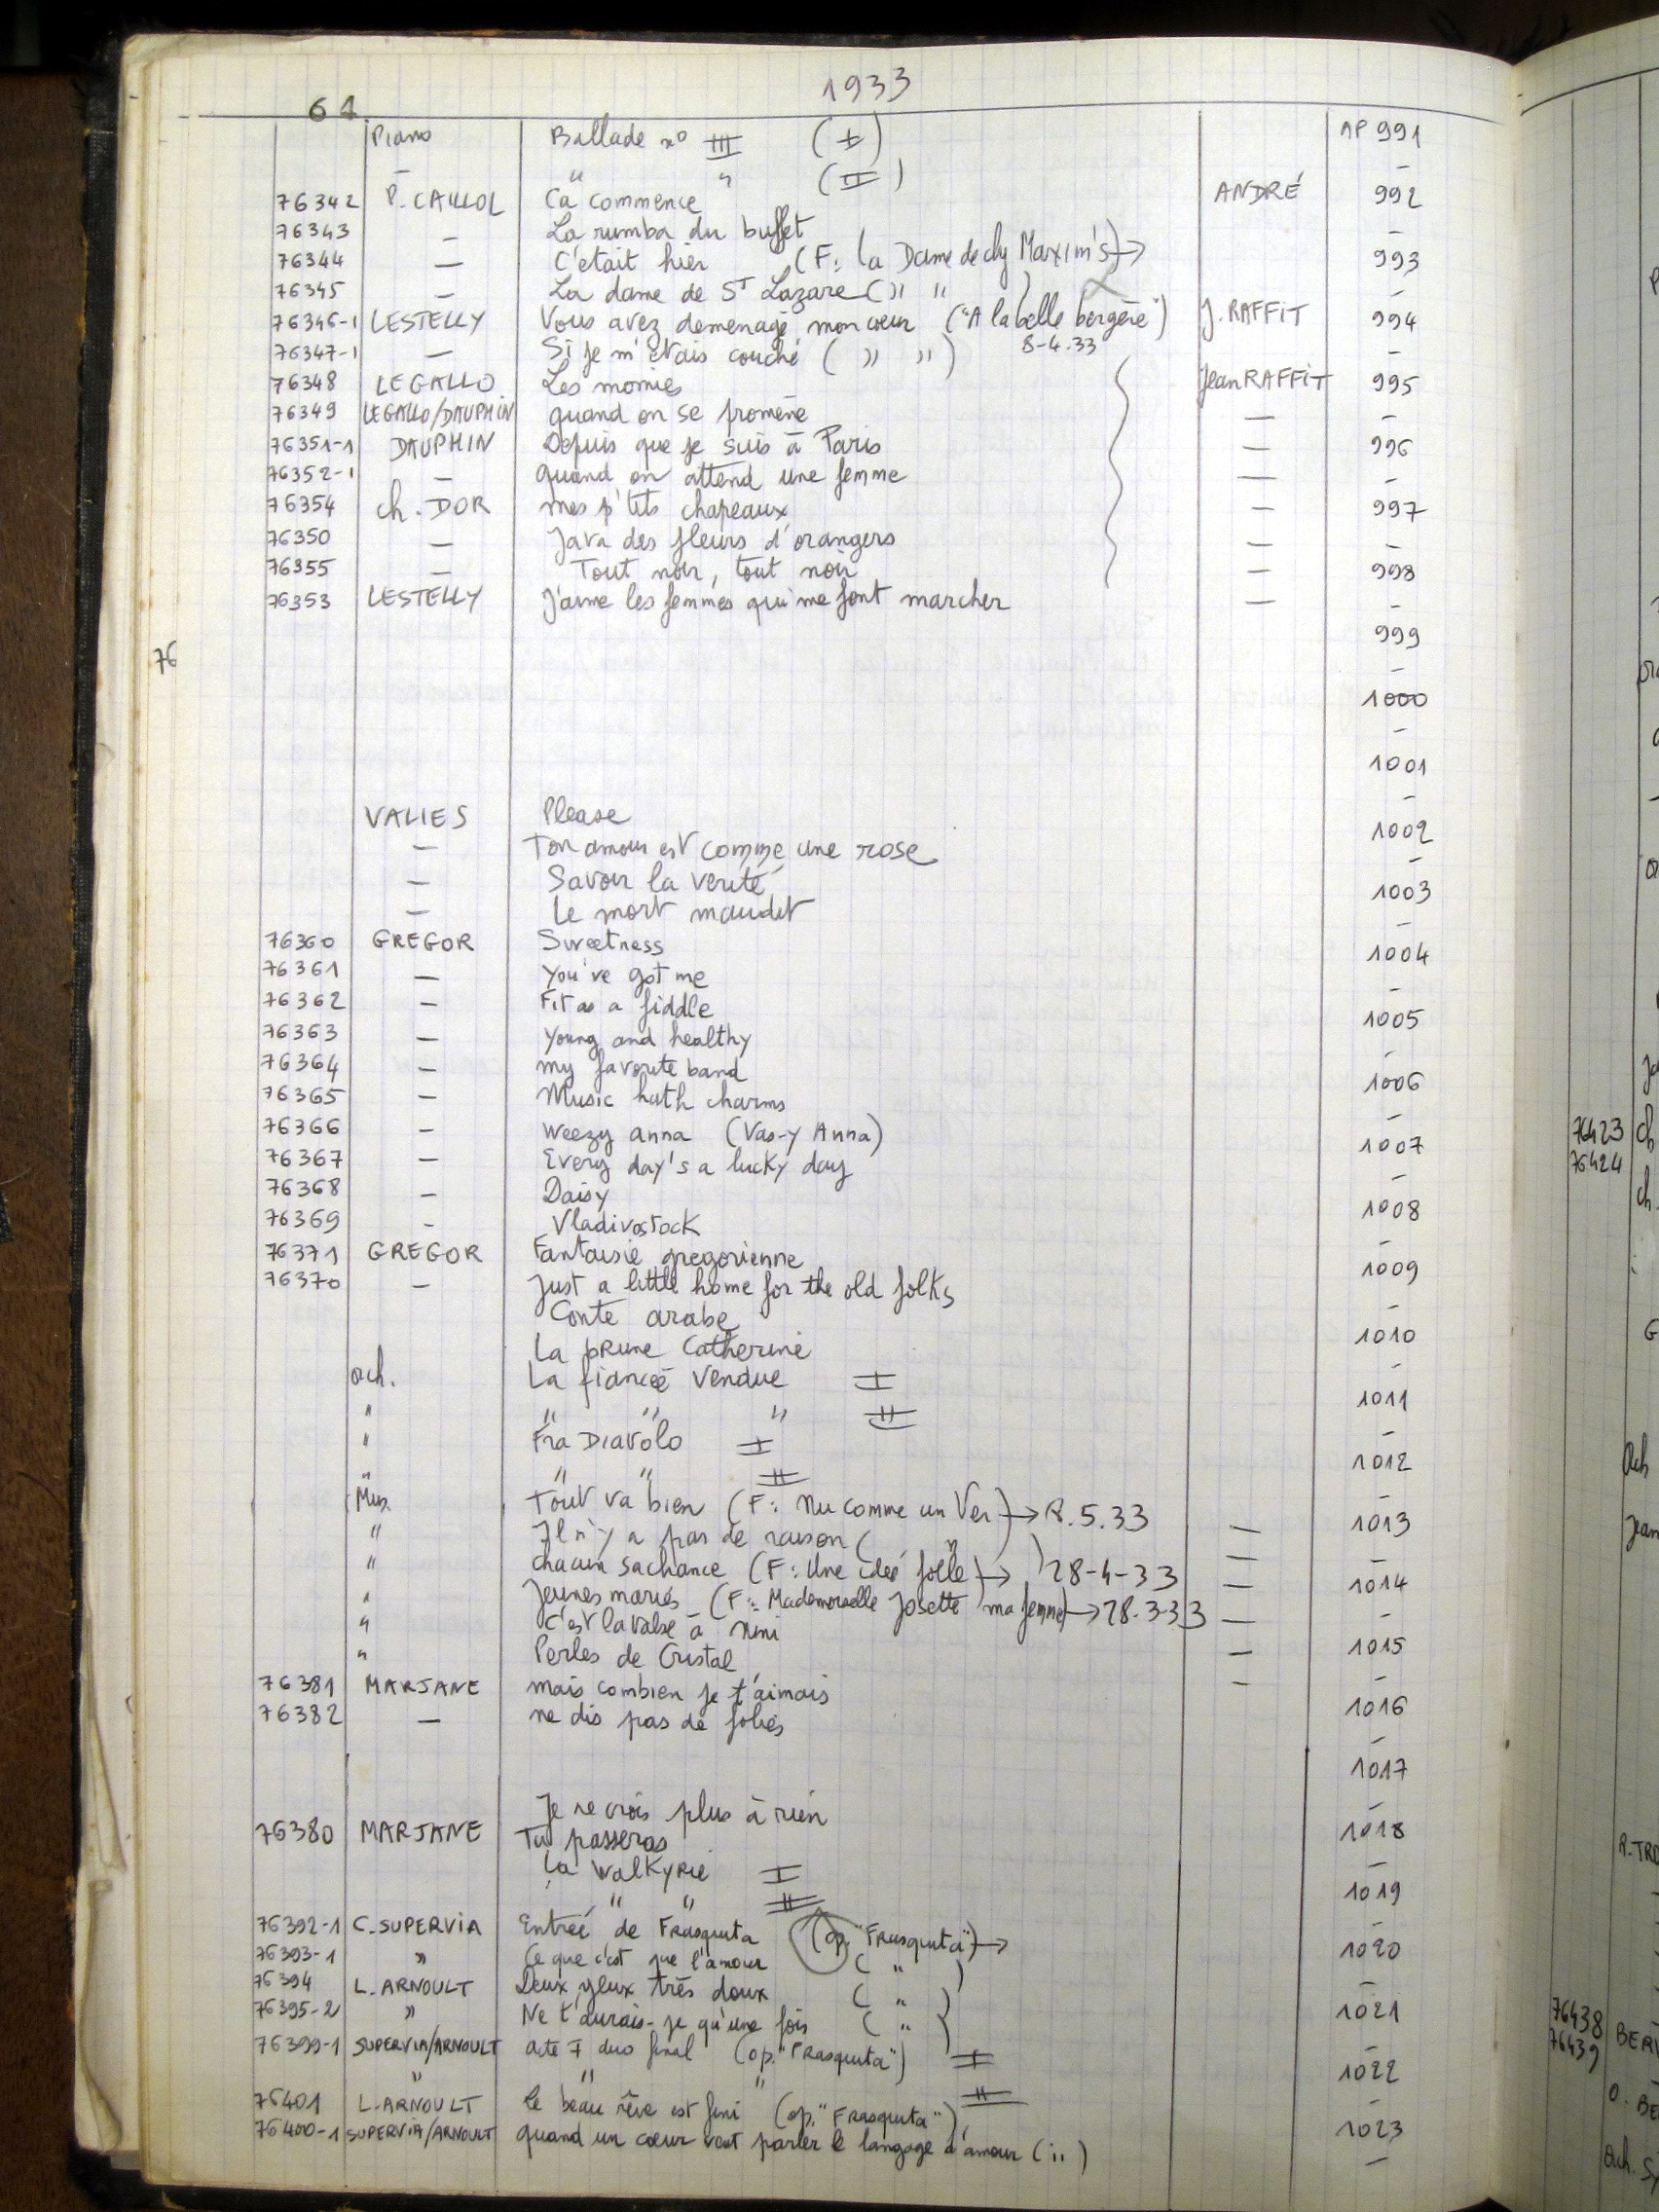 1933
61
Piano Ballade nº III (I) AP 991
— " " (II) —
76342 P. CAILLOL Ca commence ANDRÉ 992
76343 — La rumba du buffet —
76344 — C'etait hier (F: la Dame de chez Maxim's) → 993
76345 — La dame de St Lazare (" " ) —
76346-1 LESTELLY Vous avez demenagé mon cœur ("A la belle bergère") J. RAFFIT 994
76347-1 — Si je m'etais couché ( " " ) 8-4.33 —
76348 LEGALLO Les momies Jean RAFFIT 995
76349 LEGALLO/DAUPHIN quand on se promène — —
76351-1 DAUPHIN Depuis que je suis à Paris — 996
76352-1 — quand on attend une femme — —
76354 ch. DOR mes p'tits chapeaux — 997
76350 — Java des fleurs d'orangers — —
76355 — Tout noir, tout noir — 998
76353 LESTELLY J'aime les femmes qui me font marcher — —
999
76
—
1000
—
1001
—
VALIES Please 1002
— Ton amour est comme une rose —
— Savoir la verité 1003
— Le mort maudit —
76360 GREGOR Sweetness 1004
76361 — You've got me —
76362 — Fit as a fiddle 1005
76363 — Young and healthy —
76364 — my favorite band 1006
76365 — Music hath charms —
76366 — Weezy anna (Vas-y Anna) 1007
76367 — Every day's a lucky day —
76368 — Daisy 1008
76369 — Vladivostock —
76371 GREGOR Fantaisie gregorienne 1009
76370 — Just a little home for the old folks —
Conte arabe 1010
La prune Catherine —
Orch. La fiancée Vendue I 1011
" " " " II —
" Fra Diavolo I 1012
" " " II —
Mus. Tout va bien (F: Nu comme un Ver) → 8.5.33 — 1013
" Il n'y a pas de raison ( " ) — —
" chacun sa chance (F: Une idée folle) → 28-4-33 — 1014
" Jeunes mariés (F: Mademoiselle Josette ma femme) → 28.3-33 — —
" C'est la valse à Nini — 1015
" Perles de Cristal — —
76381 MARJANE mais combien je t'aimais 1016
76382 — ne dis pas de folies —
1017
Je ne crois plus à rien —
76380 MARJANE Tu passeras 1018
La Walkyrie I —
" " II 1019
76392-1 C. SUPERVIA Entrée de Frasquita (op. "Frasquita") → —
76393-1 " Ce que c'est que l'amour ( " ) 1020
76394 L. ARNOULT Deux yeux très doux ( " ) —
76395-2 " Ne t'aurais-je qu'une fois ( " ) 1021
76399-1 SUPERVIA/ARNOULT acte I duo final (op. "Frasquita") I —
" " " II 1022
76401 L. ARNOULT le beau rêve est fini (op. "Frasquita") —
76400-1 SUPERVIA/ARNOULT quand un cœur veut parler le langage d'amour ( " ) 1023
—
76423 ch
76424
ch.
G
Orch
Jean
R. TRO
76438 BER
76439
O. BE
Orch. Sy